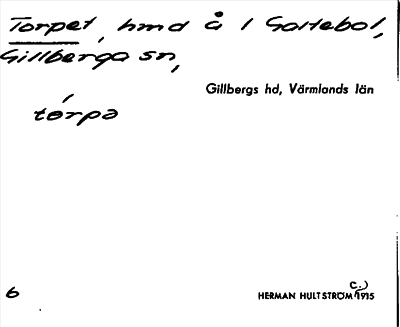 Torpet, hmd å 1 Galtebol,
Gillberga sn,
Gillbergs hd, Värmlands län
tórpə
6
HERMAN HULTSTRÖM (c.) 1915